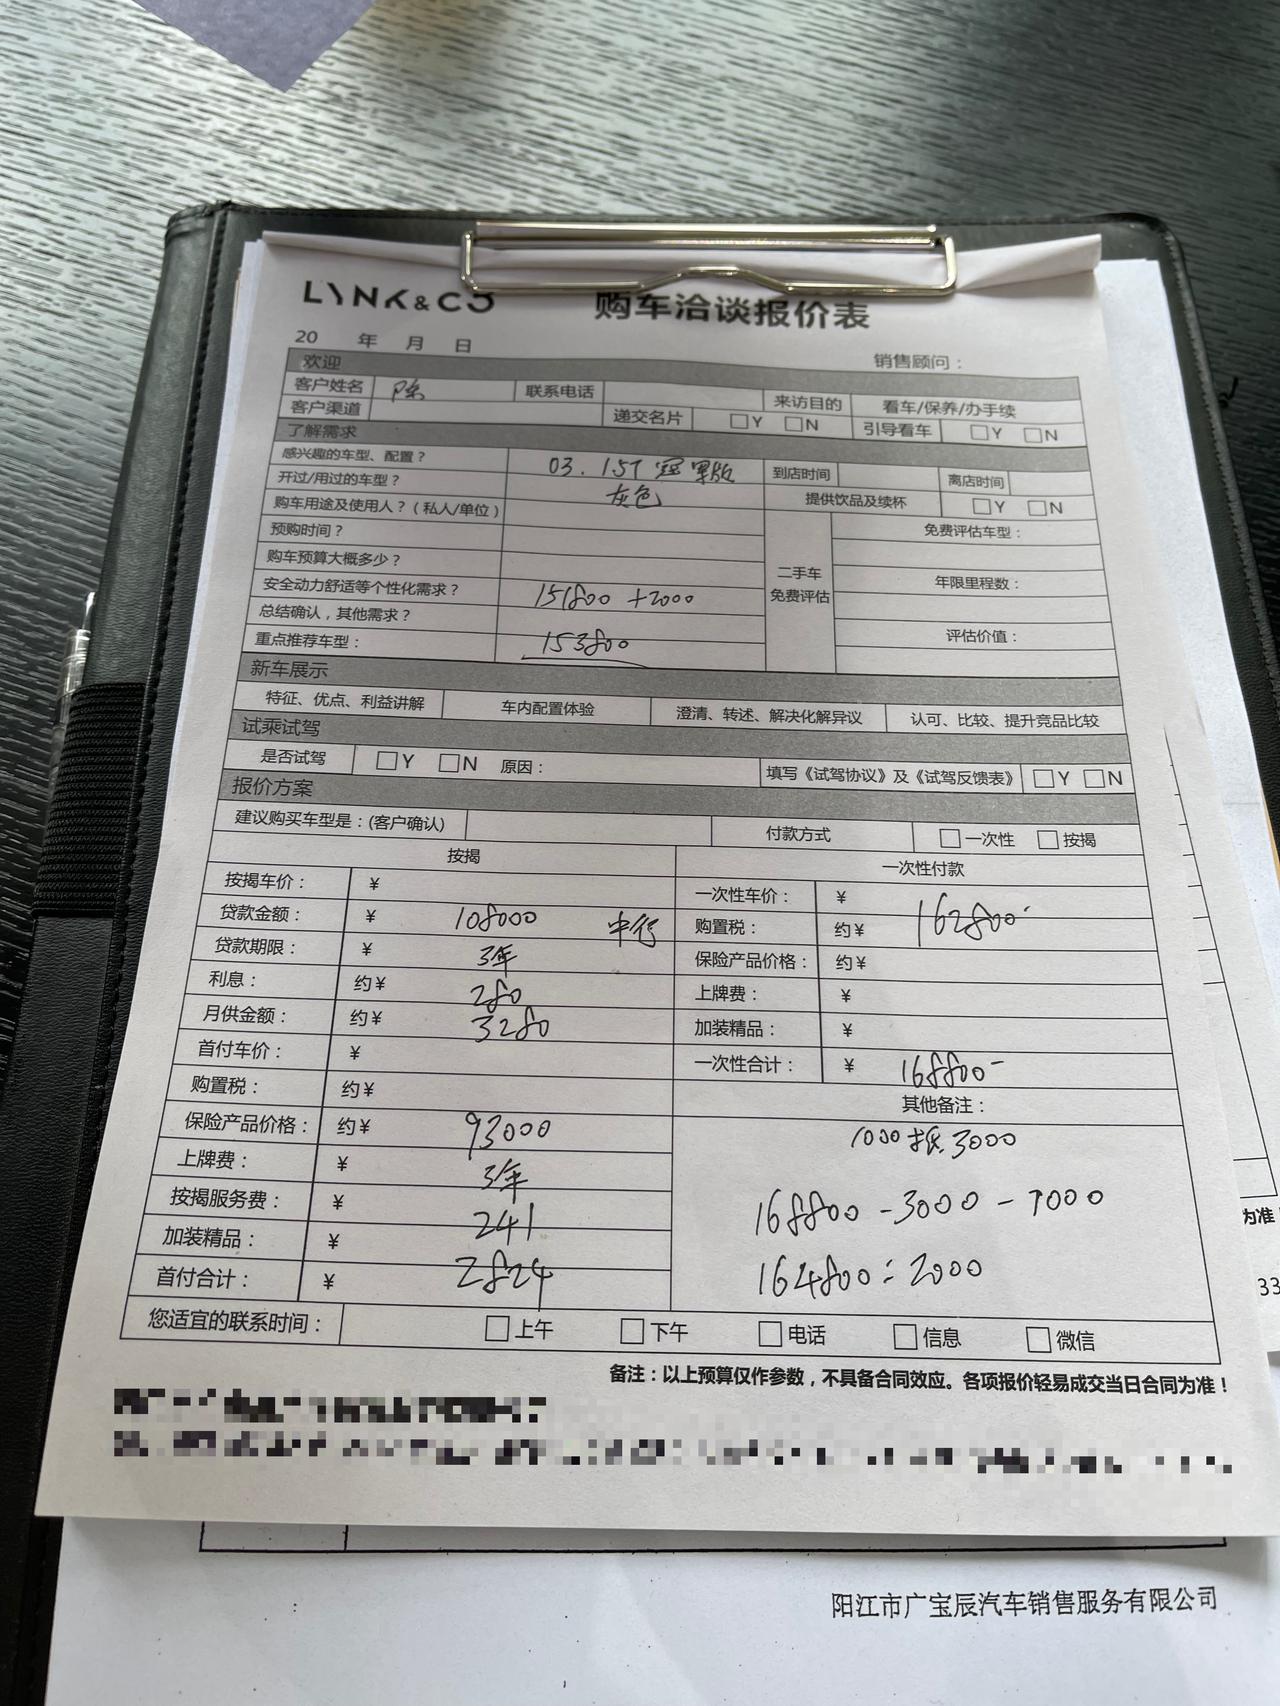 LYNK & CO 购车洽谈报价表
20 年 月 日 销售顾问：
欢迎
客户姓名 陈 联系电话 来访目的 看车/保养/办手续
客户渠道 递交名片 □Y □N 引导看车 □Y □N
了解需求
感兴趣的车型、配置？ 03. 1.5T 冠军版 到店时间 离店时间
开过/用过的车型？ 灰色 提供饮品及续杯 □Y □N
购车用途及使用人？（私人/单位） 免费评估车型：
预购时间？
购车预算大概多少？ 二手车 年限里程数：
安全动力舒适等个性化需求？ 151800 +2000 免费评估
总结确认，其他需求？ 评估价值：
重点推荐车型： 153800
新车展示
特征、优点、利益讲解 车内配置体验 澄清、转述、解决化解异议 认可、比较、提升竞品比较
试乘试驾
是否试驾 □Y □N 原因： 填写《试驾协议》及《试驾反馈表》 □Y □N
报价方案
建议购买车型是：(客户确认) 付款方式 □一次性 □按揭
按揭 一次性付款
按揭车价： ¥ 一次性车价： ¥ 162800
贷款金额： ¥ 108000 中行 购置税： 约¥
贷款期限： ¥ 3年 保险产品价格： 约¥
利息： 约¥ 280 上牌费： ¥
月供金额： 约¥ 3280 加装精品： ¥
首付车价： ¥ 一次性合计： ¥ 168800-
购置税： 约¥ 其他备注：
保险产品价格： 约¥ 93000 1000抵3000
上牌费： ¥ 3年
按揭服务费： ¥ 241 168800-3000-1000
加装精品： ¥ 2824 164800=2000
首付合计： ¥
您适宜的联系时间： □上午 □下午 □电话 □信息 □微信
备注：以上预算仅作参数，不具备合同效应。各项报价轻易成交当日合同为准！
为准！
33
阳江市广宝辰汽车销售服务有限公司